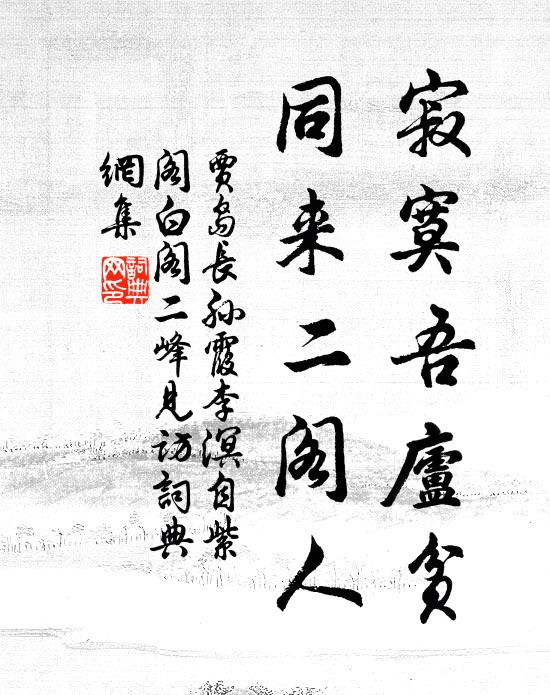 寂寞吾廬貧
同来二閣人
賈島長孫霞李溟自紫
閣白閣二峰見訪詞典
網集
詞典
网印